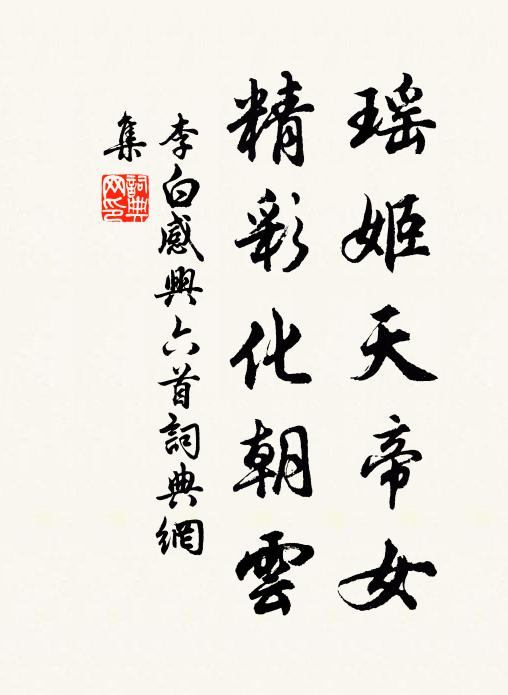 瑶姬天帝女
精彩化朝雲
李白感興六首詞典網
集
詞典网印